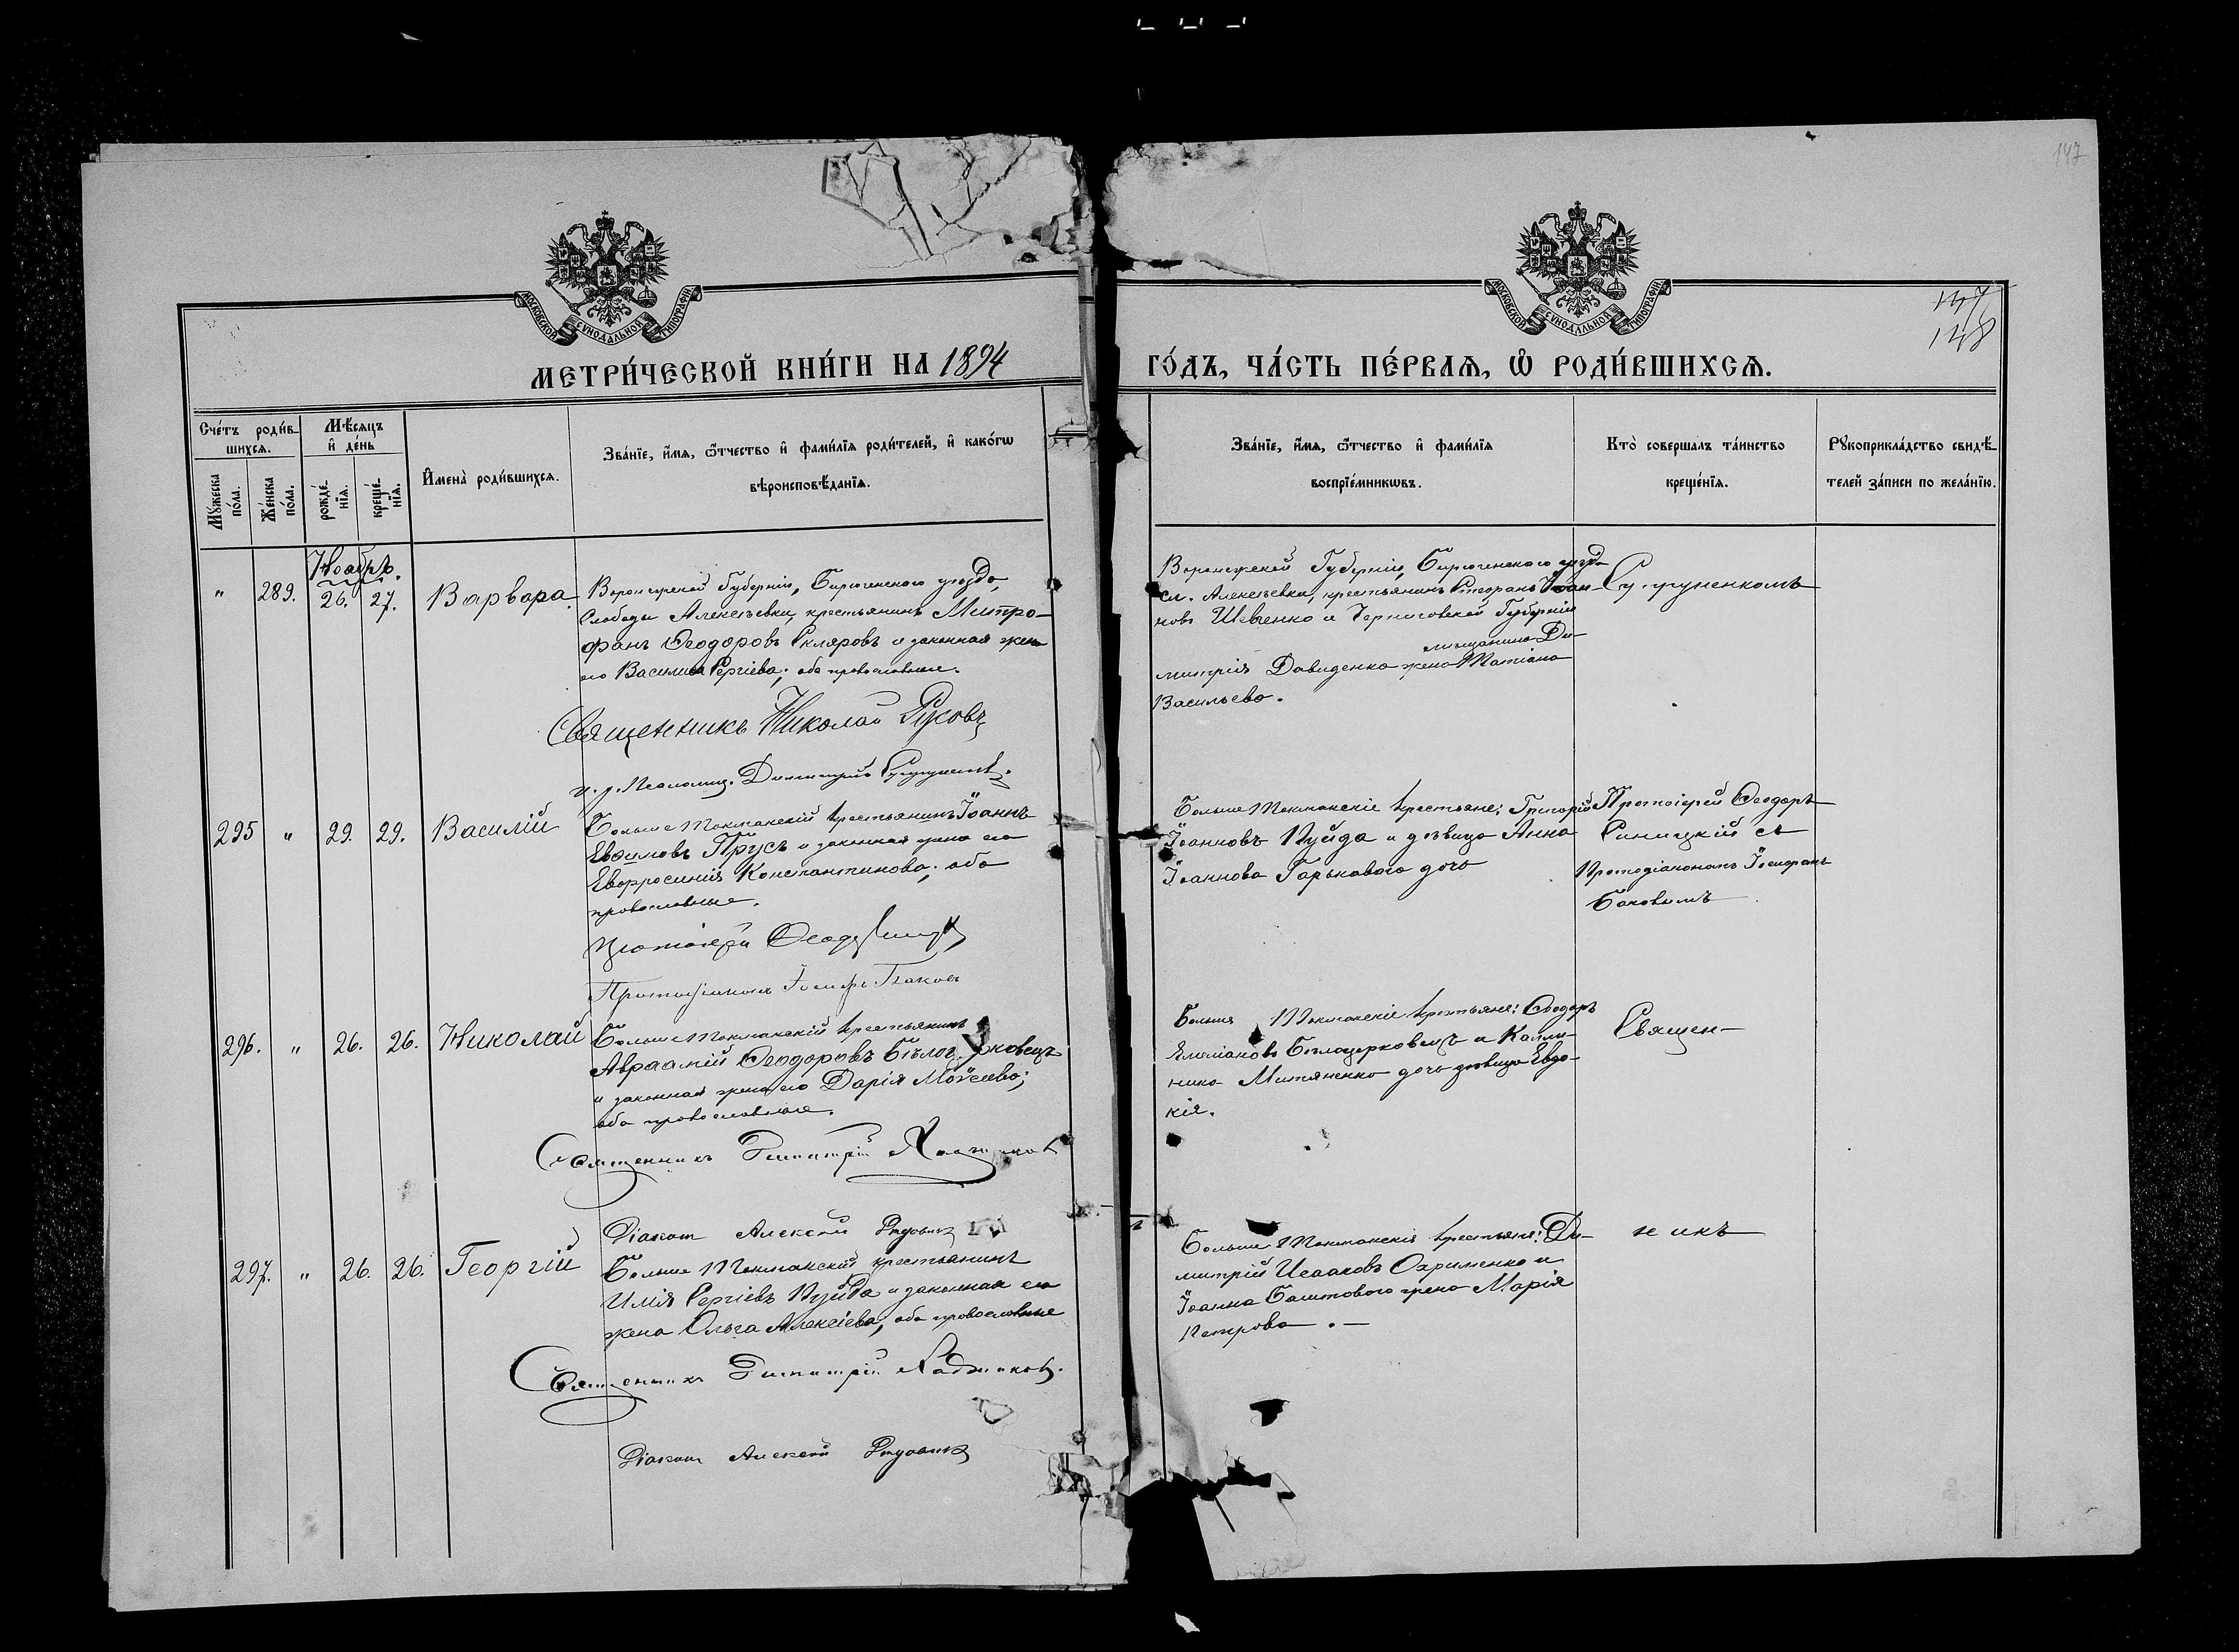 147
МОСКОВСКОЙ СѴНОДАЛЬНОЙ ТИПОГРАФІИ
МОСКОВСКОЙ СѴНОДАЛЬНОЙ ТИПОГРАФІИ
147
148
МЕТРИ́ЧЕСКОЙ КНИ́ГИ НА 1894 ГО́ДЪ, ЧА́СТЬ ПЕ́РВАѦ, Ѡ РОДИ́ВШИХСѦ.
Сче́тъ роди́вшихсѧ.
Мѣ́сѧцъ и де́нь
Мꙋ́жеска по́ла.
Же́нска по́ла.
рожде́нїѧ.
креще́нїѧ.
Имена̀ роди́вшихсѧ.
Зва́нїе, и́мѧ, ѻ́тчество и фами́лїѧ роди́телей, и како́гѡ
вѣроисповѣ́данїѧ.
Зва́нїе, и́мѧ, ѻ́тчество и фами́лїѧ
воспрїе́мникѡвъ.
Кто̀ соверша́лъ та́инство
креще́нїѧ.
Рꙋкоприкла́дство свидѣ́-
телей за́писи по жела́нїю.
Ноябрь.
" 289. 26. 27. Варвара
Воронежской Губерніи, Бирюченского уѣзда,
Слободы Алексѣевки, крестьянинъ Митро-
фанъ Ѳеодоровъ Скляровъ и законная жена
его Василиса Сергіева; оба православные.
Священникъ Николай Русовъ
Димитрій
Воронежской Губерніи, Бирюченского уѣзда
сл. Алексѣевки, крестьянинъ Стефанъ Іоан-
новъ Шевченко и Черниговской Губерніи
мѣщанина Ди-
митрія Давиденко жена Татіана
Васильева.
295 " 29. 29. Василій
Больше Токмакскій крестьянинъ Іоаннъ
Евѳимовъ Прусъ и законная жена его
Евфросинія Константинова; оба
православные.
Протоіерей Ѳеодоръ
Протодіаконъ Іосифъ Баковъ
Больше Токмакскіе крестьяне: Григорій
Іоанновъ Пуйда и дѣвица Анна
Іоаннова Горькаваго дочь
Протоіерей Ѳеодоръ
Синицкій съ
Протодіакономъ Іосифомъ
Баковымъ
296. " 26. 26. Николай
Больше Токмакскій крестьянинъ
Авраамій Ѳеодоровъ Бѣлоцерковецъ
и законная жена его Дарія Моѵсеева;
оба православные.
Священникъ Димитрій
Діаконъ Алексѣй
Больше Токмакскіе крестьяне: Ѳеодоръ
Емиліановъ Бѣлоцерковецъ и Калли-
ника Митяненко дочь дѣвица Евдо-
кія.
Священ-
297. " 26. 26. Георгій
Больше Токмакскій крестьянинъ
Илія Сергіевъ Пуйда и законная его
жена Ольга Алексіева, оба православные
Священникъ Димитрій
Діаконъ Алексѣй
Больше Токмакскіе крестьяне: Ди-
митрій Исааковъ Охрименко и
Іоанна Баштового жена Марія
Петрова. —
никъ